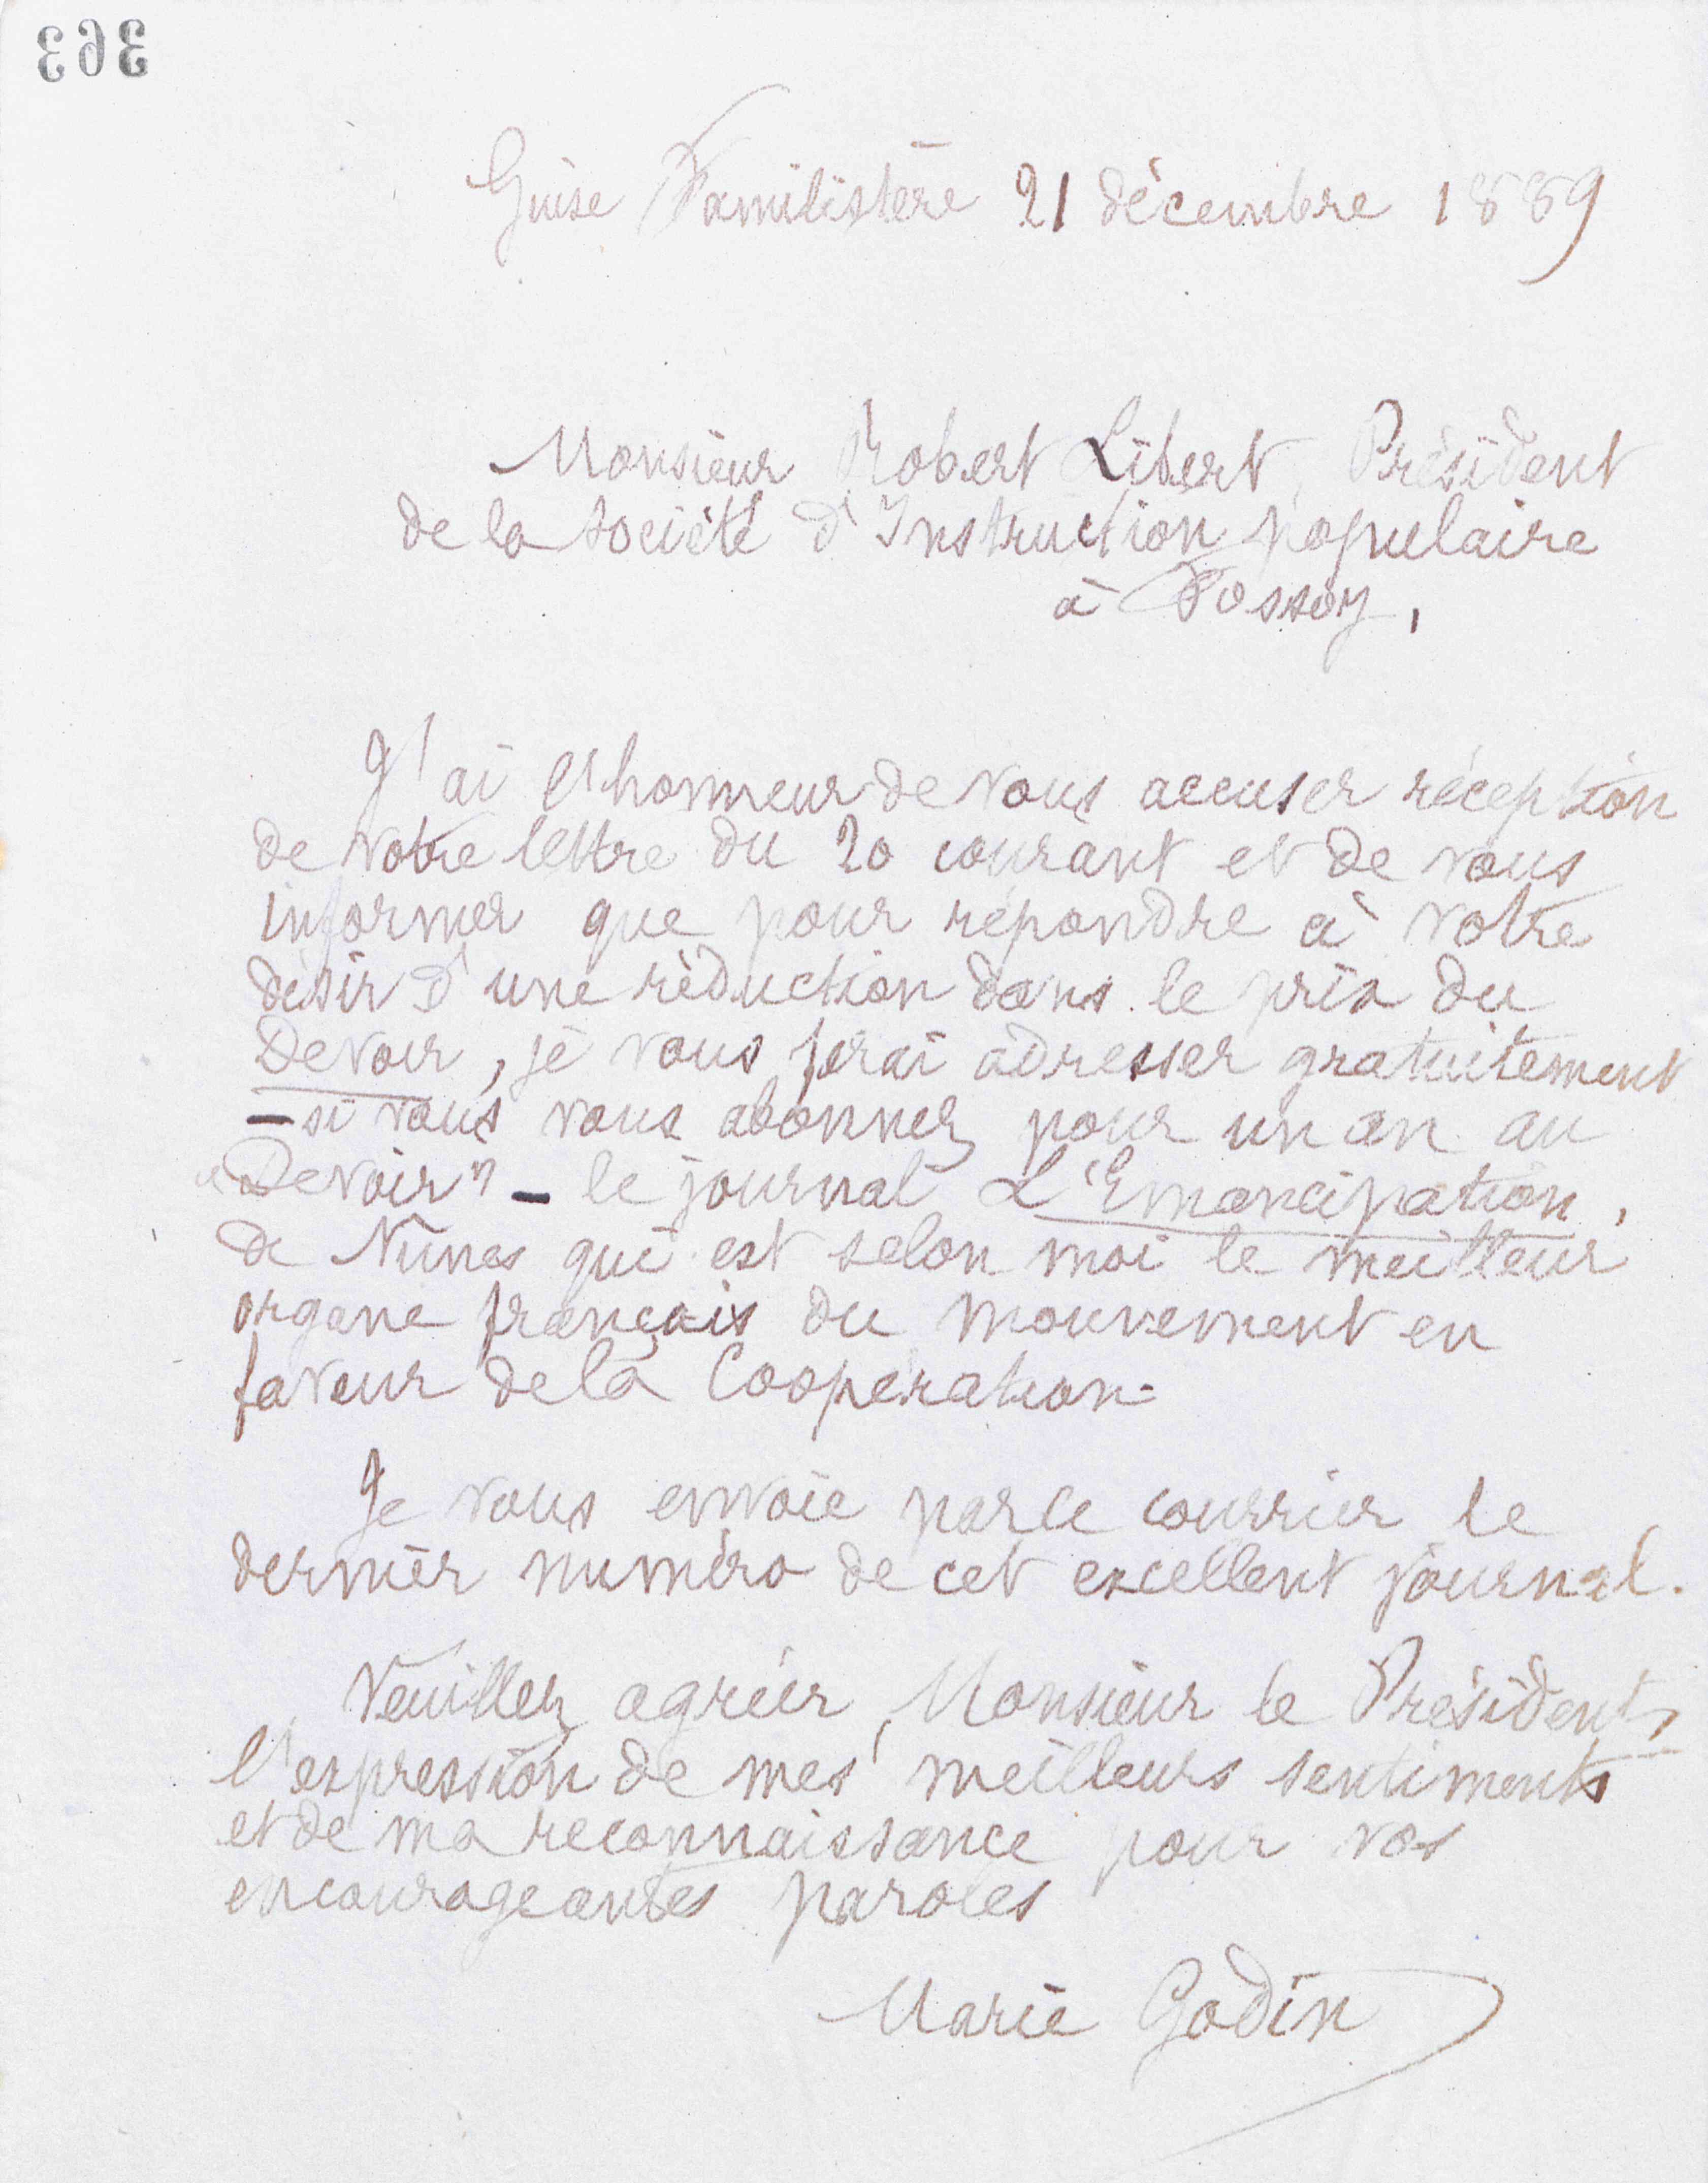 363
Guise Familistère 21 décembre 1889
Monsieur Robert Libert, Président
de la société d'Instruction populaire
à Fossoy,
J'ai l'honneur de vous accuser réception
de votre lettre du 20 courant et de vous
informer que pour répondre à votre
désir d'une réduction dans le prix du
Devoir, je vous ferai adresser gratuitement
– si vous vous abonnez pour un an au
"Devoir" – le journal L'Emancipation,
de Nîmes qui est selon moi le meilleur
organe français du mouvement en
faveur de la Coopération.
Je vous envoie par le courrier le
dernier numéro de cet excellent journal.
Veuillez agréer, Monsieur le Président,
l'expression de mes meilleurs sentiments
et de ma reconnaissance pour vos
encourageantes paroles
Marie Godin